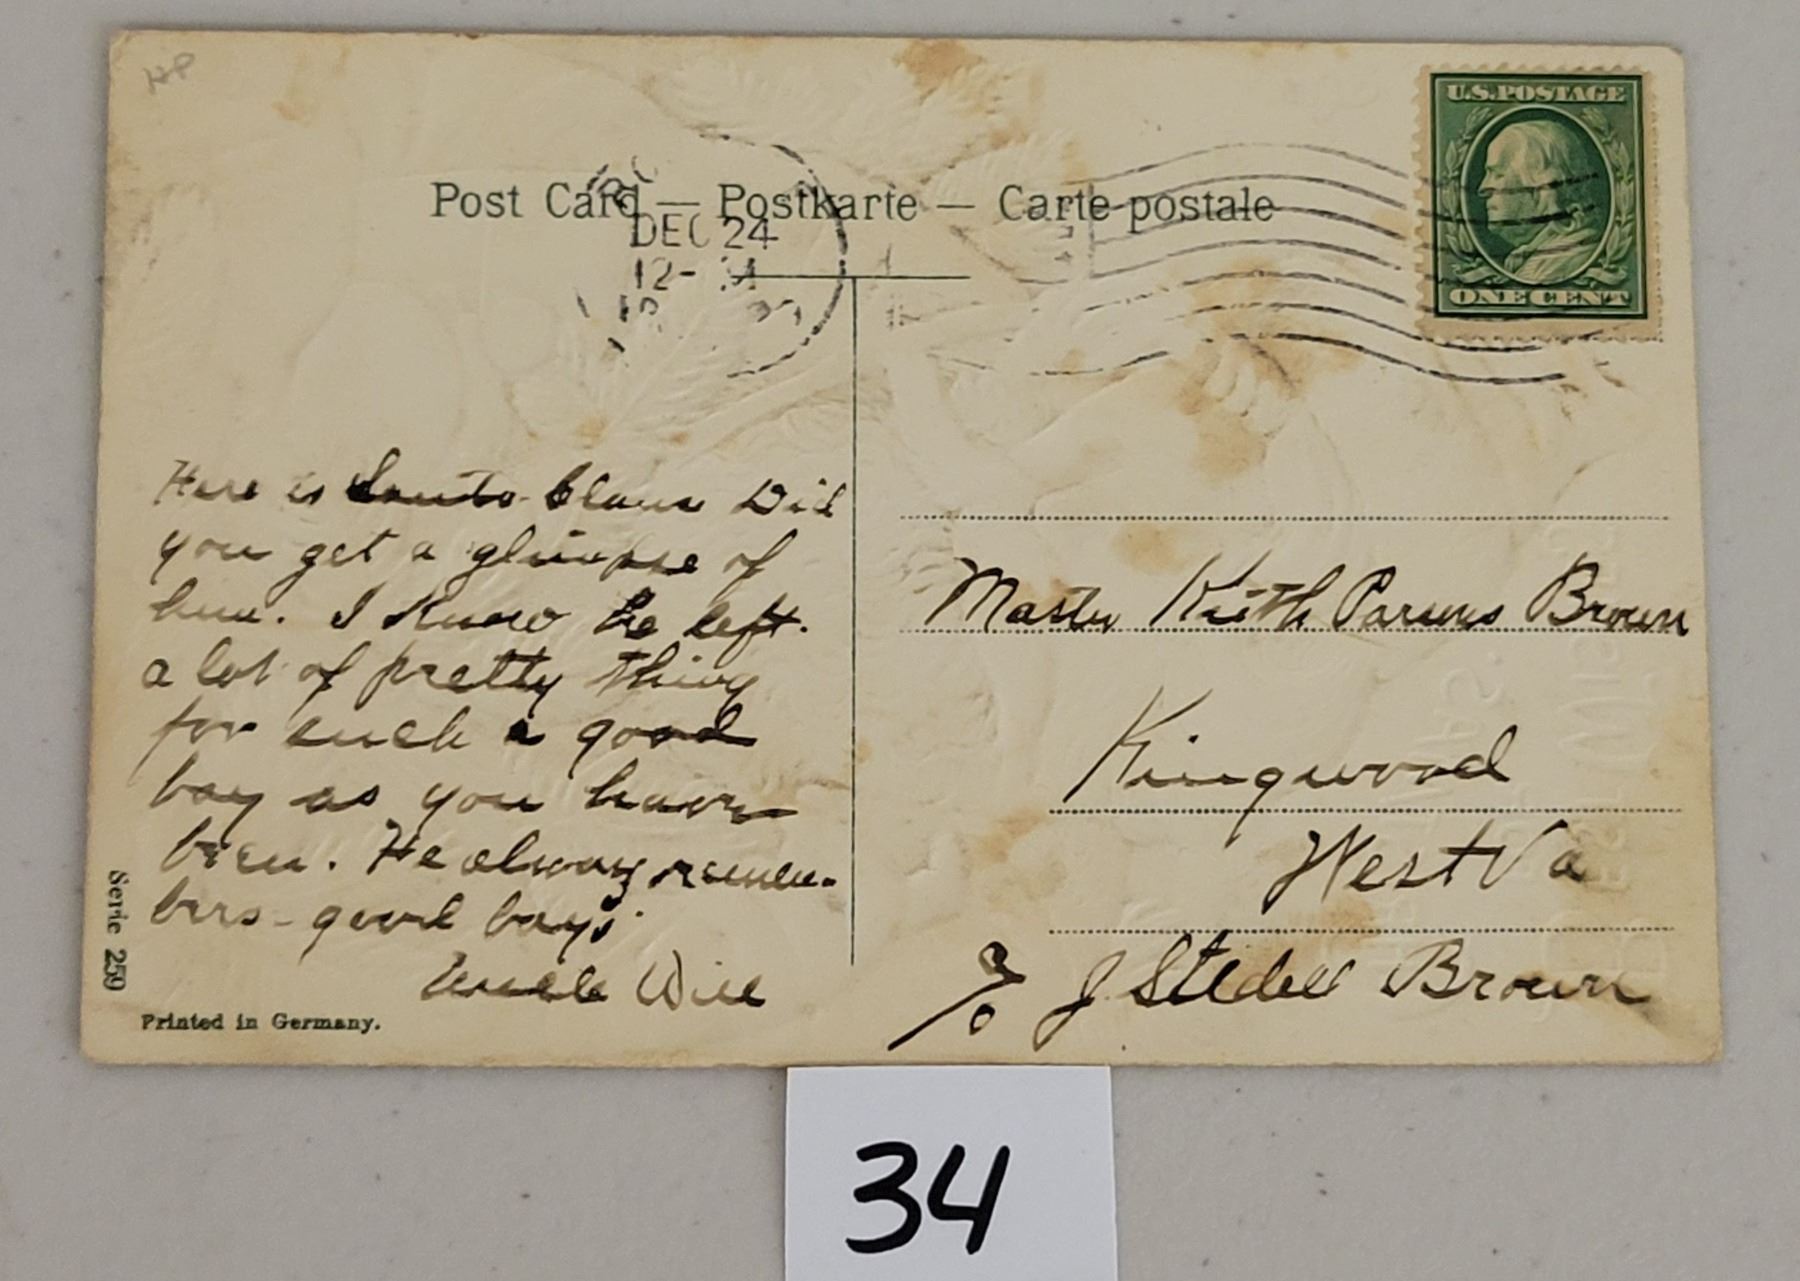 HP
U.S. POSTAGE
ONE CENT
Post Card — Postkarte — Carte postale
DEC 24
12-
Here is Santa Claus Did
you get a glimpse of
him. I know he left
a lot of pretty thing
for such a good
boy as you have
been. He always remem-
bers good boys.
Uncle Will
Serie 259
Printed in Germany.
Master Keith Parsons Brown
Kingwood
West Va
c/o J Stedell Brown
34